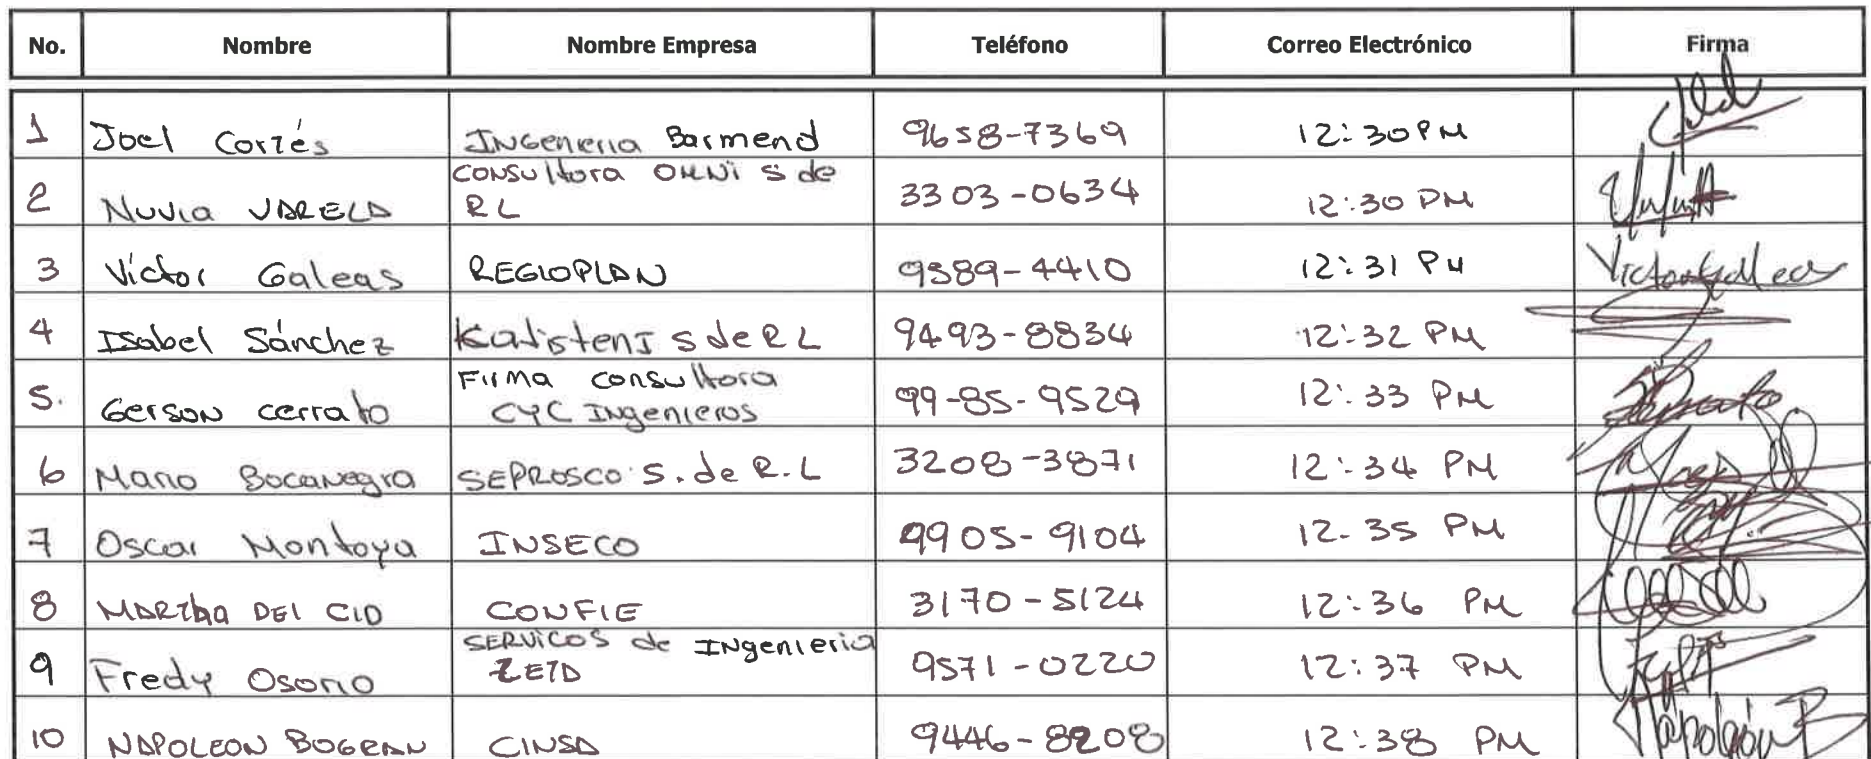 No. Nombre Nombre Empresa Teléfono Correo Electrónico Firma
1 Joel Cortés INGenieria Barmend 9658-7369 12:30 PM
2 Nuvia VARELA Consultora OMNi S de RL 3303-0634 12:30 PM
3 Víctor Galeas REGIOPLAN 9589-4410 12:31 PM Victor Galeas
4 Isabel Sánchez KalistenI S de R L 9493-8834 12:32 PM
5. Gerson Cerrato Firma Consultora CYC Ingenieros 99-85-9529 12:33 PM
6 Mario Bocanegra SEPROSCO S. de R.L 3208-3871 12:34 PM
7 Oscar Montoya INSECO 9905-9104 12-35 PM
8 MARTha DEl CID CONFIE 3170-5124 12:36 PM
9 Fredy Osorio SERVICOS de INgenieria 9571-0220 12:37 PM
10 NAPOLEON BOGRAN CINSA 9446-8208 12:38 PM Napoleón B